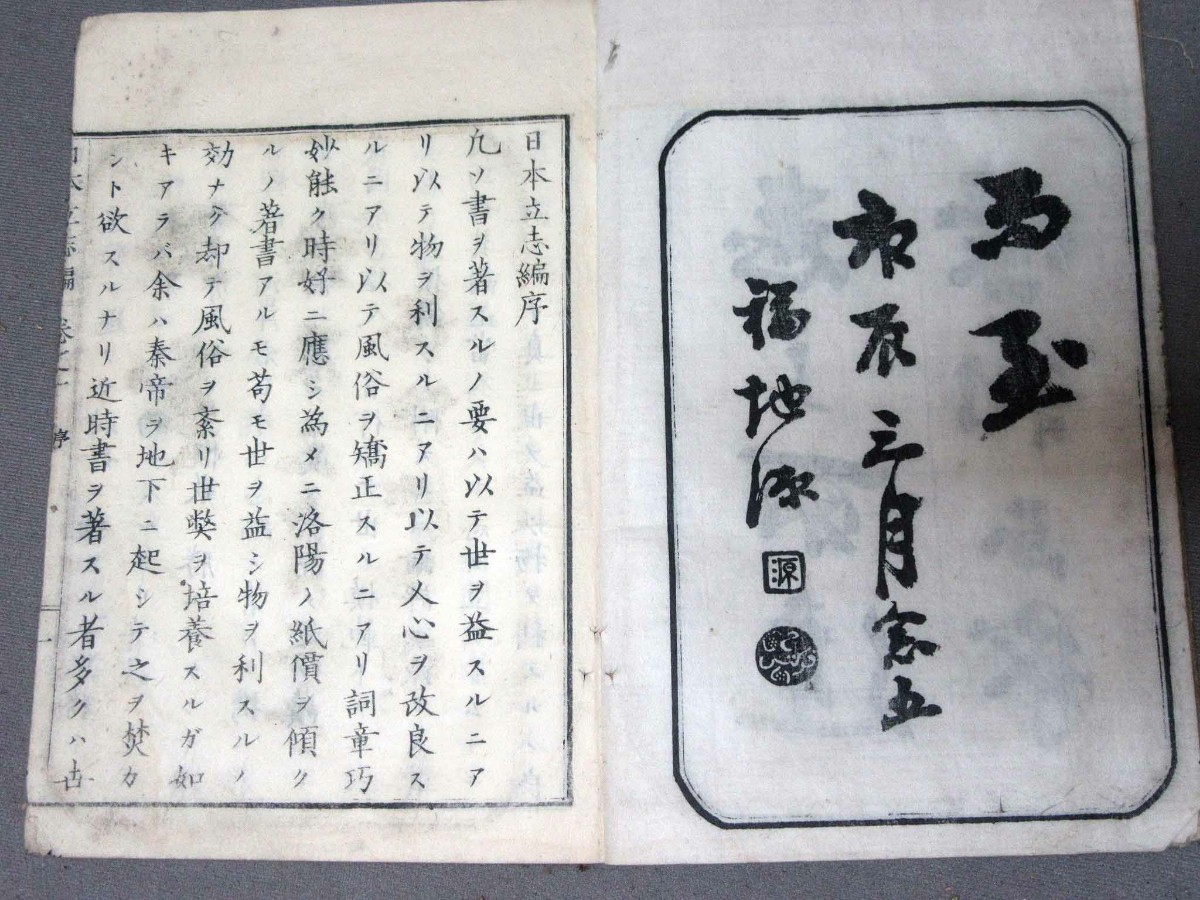 辰三月念五
福地源
源
日本立志編序
凢ソ書ヲ著スルノ要ハ以テ世ヲ益スルニア
リ以テ物ヲ利スルニアリ以テ人心ヲ改良ス
ルニアリ以テ風俗ヲ矯正スルニアリ詞章巧
妙能ク時好ニ應シ為メニ洛陽ノ紙價ヲ傾ク
ルノ著書アルモ苟モ世ヲ益シ物ヲ利スルノ
効ナク却テ風俗ヲ紊リ世獘ヲ培養スルガ如
キアラバ余ハ秦帝ヲ地下ニ起シテ之ヲ焚カ
ント欲スルナリ近時書ヲ著スル者多クハ古
日本立志編 卷之一 序 一